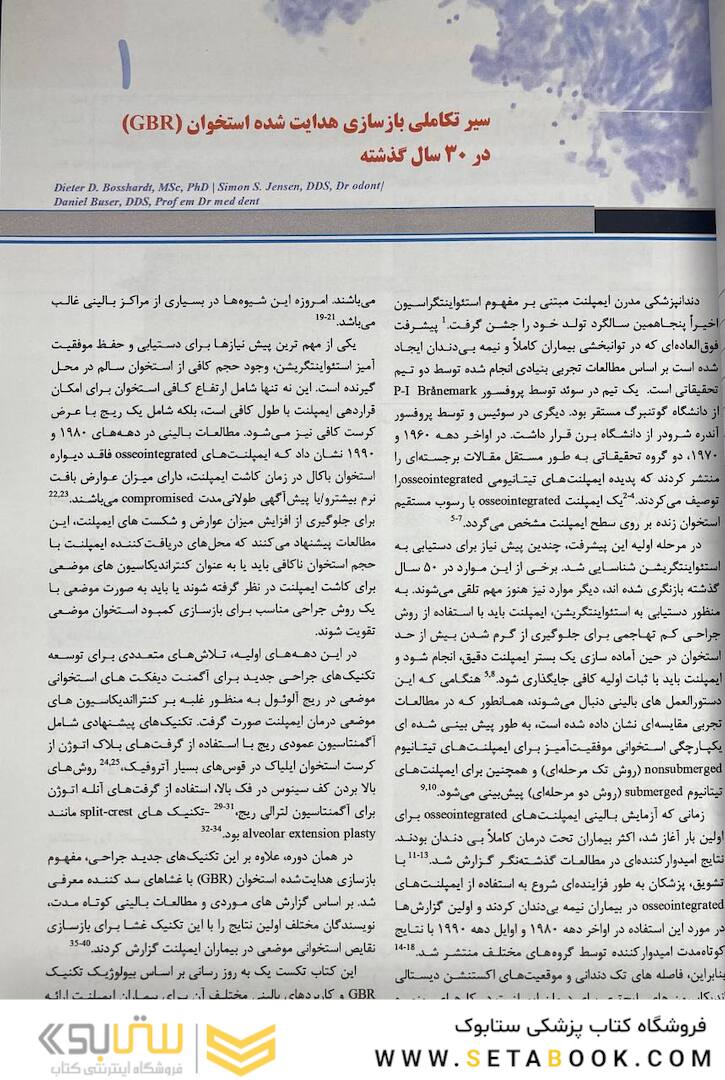 ۱
سیر تکاملی بازسازی هدایت شده استخوان (GBR)
در ۳۰ سال گذشته
Dieter D. Bosshardt, MSc, PhD | Simon S. Jensen, DDS, Dr odont/
Daniel Buser, DDS, Prof em Dr med dent
دندانپزشکی مدرن ایمپلنت مبتنی بر مفهوم استئواینتگراسیون
اخیراً پنجاهمین سالگرد تولد خود را جشن گرفت.1 پیشرفت
فوق‌العاده‌ای که در توانبخشی بیماران کاملاً و نیمه بی‌دندان ایجاد
شده است بر اساس مطالعات تجربی بنیادی انجام شده توسط دو تیم
تحقیقاتی است. یک تیم در سوئد توسط پروفسور P-I Brånemark
از دانشگاه گوتنبرگ مستقر بود. دیگری در سوئیس و توسط پروفسور
آندره شرودر از دانشگاه برن قرار داشت. در اواخر دهه ۱۹۶۰ و
۱۹۷۰، دو گروه تحقیقاتی به طور مستقل مقالات برجسته‌ای را
منتشر کردند که پدیده ایمپلنت‌های تیتانیومی osseointegratedرا
توصیف می‌کردند.2-4یک ایمپلنت osseointegrated با رسوب مستقیم
استخوان زنده بر روی سطح ایمپلنت مشخص می‌گردد.5-7
در مرحله اولیه این پیشرفت، چندین پیش نیاز برای دستیابی به
استئواینتگریشن شناسایی شد. برخی از این موارد در ۵۰ سال
گذشته بازنگری شده اند، دیگر موارد نیز هنوز مهم تلقی می‌شوند. به
منظور دستیابی به استئواینتگریشن، ایمپلنت باید با استفاده از روش
جراحی کم تهاجمی برای جلوگیری از گرم شدن بیش از حد
استخوان در حین آماده سازی یک بستر ایمپلنت دقیق، انجام شود و
ایمپلنت باید با ثبات اولیه کافی جایگذاری شود.5,8 هنگامی که این
دستورالعمل های بالینی دنبال می‌شوند، همانطور که در مطالعات
تجربی مقایسه‌ای نشان داده شده است، به طور پیش بینی شده ای
یکپارچگی استخوانی موفقیت‌آمیز برای ایمپلنت‌های تیتانیوم
nonsubmerged (روش تک مرحله‌ای) و همچنین برای ایمپلنت‌های
تیتانیوم submerged (روش دو مرحله‌ای) پیش‌بینی می‌شود.9,10
زمانی که آزمایش بالینی ایمپلنت‌های osseointegrated برای
اولین بار آغاز شد، اکثر بیماران تحت درمان کاملاً بی دندان بودند.
نتایج امیدوارکننده‌ای در مطالعات گذشته‌نگر گزارش شد.11-13 با
تشویق، پزشکان به طور فزاینده‌ای شروع به استفاده از ایمپلنت‌های
osseointegrated در بیماران نیمه بی‌دندان کردند و اولین گزارش‌ها
در مورد این استفاده در اواخر دهه ۱۹۸۰ و اوایل دهه ۱۹۹۰ با نتایج
کوتاه‌مدت امیدوارکننده توسط گروه‌های مختلف منتشر شد.14-18
بنابراین، فاصله های تک دندانی و موقعیت‌های اکستنشن دیستالی
می‌باشند. امروزه این شیوه‌ها در بسیاری از مراکز بالینی غالب
می‌باشد.19-21
یکی از مهم ترین پیش نیازها برای دستیابی و حفظ موفقیت
آمیز استئواینتگریشن، وجود حجم کافی از استخوان سالم در محل
گیرنده است. این نه تنها شامل ارتفاع کافی استخوان برای امکان
قراردهی ایمپلنت با طول کافی است، بلکه شامل یک ریج با عرض
کرست کافی نیز می‌شود. مطالعات بالینی در دهه‌های ۱۹۸۰ و
۱۹۹۰ نشان داد که ایمپلنت‌های osseointegrated فاقد دیواره
استخوان باکال در زمان کاشت ایمپلنت، دارای میزان عوارض بافت
نرم بیشترو/یا پیش‌آگهی طولانی‌مدت compromised می‌باشند.22,23
برای جلوگیری از افزایش میزان عوارض و شکست های ایمپلنت، این
مطالعات پیشنهاد می‌کنند که محل‌های دریافت‌کننده ایمپلنت با
حجم استخوان ناکافی باید یا به عنوان کنتراندیکاسیون های موضعی
برای کاشت ایمپلنت در نظر گرفته شوند یا باید به صورت موضعی با
یک روش جراحی مناسب برای بازسازی کمبود استخوان موضعی
تقویت شوند.
در این دهه‌های اولیه، تلاش‌های متعددی برای توسعه
تکنیک‌های جراحی جدید برای آگمنت دیفکت های استخوانی
موضعی در ریج آلوئول به منظور غلبه بر کنترااندیکاسیون های
موضعی درمان ایمپلنت صورت گرفت. تکنیک‌های پیشنهادی شامل
آگمنتاسیون عمودی ریج با استفاده از گرفت‌های بلاک اتوژن از
کرست استخوان ایلیاک در قوس‌های بسیار آتروفیک،24,25 روش‌های
بالا بردن کف سینوس در فک بالا، استفاده از گرفت‌های آنله اتوژن
برای آگمنتاسیون لترالی ریج،29-31 -تکنیک های split-crest مانند
alveolar extension plasty بود.32-34
در همان دوره، علاوه بر این تکنیک‌های جدید جراحی، مفهوم
بازسازی هدایت‌شده استخوان (GBR) با غشاهای سد کننده معرفی
شد. بر اساس گزارش های موردی و مطالعات بالینی کوتاه مدت،
نویسندگان مختلف اولین نتایج را با این تکنیک غشا برای بازسازی
نقایص استخوانی موضعی در بیماران ایمپلنت گزارش کردند.35-40
این کتاب تکست یک به روز رسانی بر اساس بیولوژیک تکنیک
GBR و کاربردهای بالینی مختلف آن برای بیماران ایمپلنت ارائه
فروشگاه کتاب پزشکی ستابوک
WWW.SETABOOK.COM
ستابوک
فروشگاه اینترنتی کتاب